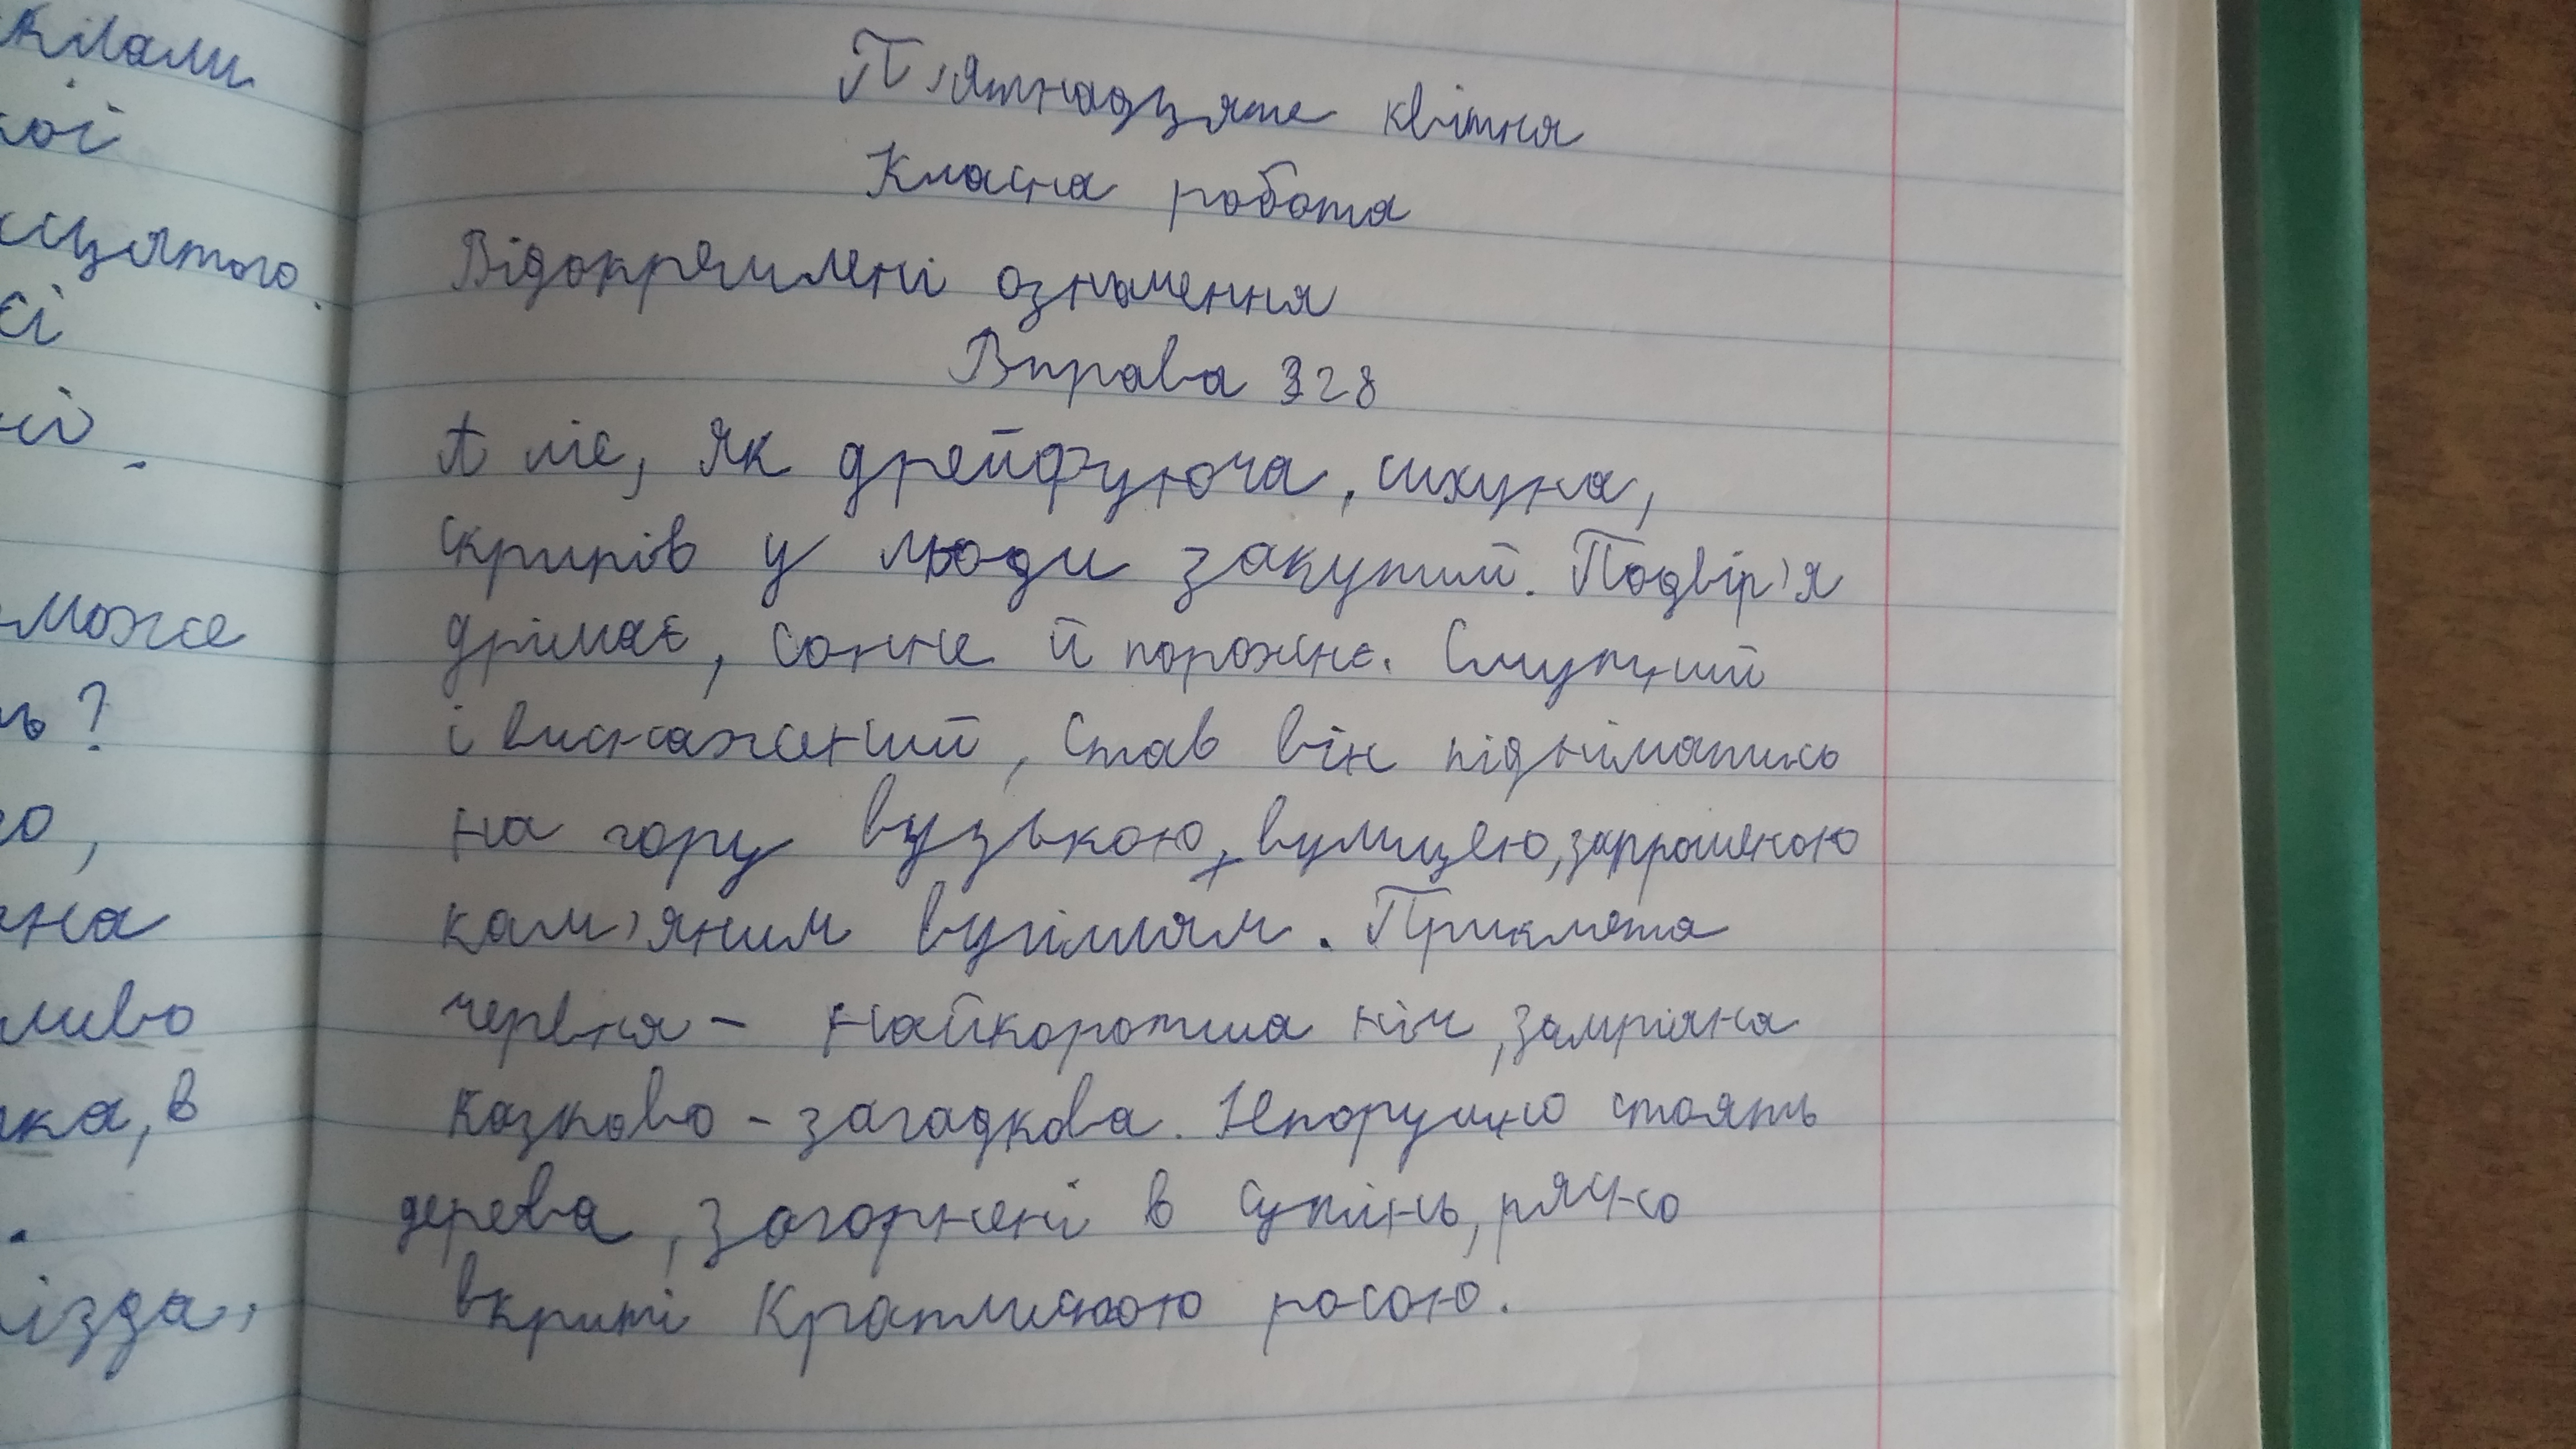 кілами
кої
єї
ні
може
ь?
о,
на
ливо
ка, в
ізда,
П'ятнадцяте квітня
Класна робота
Відокремлені означення
Вправа 328
А ліс, як дрейфуюча, шхуна,
скрипів у льоди закутий. Подвір'я
дрімає, сонне й порожнє. Смутний
і виснажений, став він підніматись
на гору вузькою, вулицею, запрошеною
кам'яним вугіллям. Прикмета
червня - найкоротша ніч, замріяна
казково - загадкова. Непорушно стоять
дерева, загорнені в сутінь, рясно
вкриті краплистою росою.